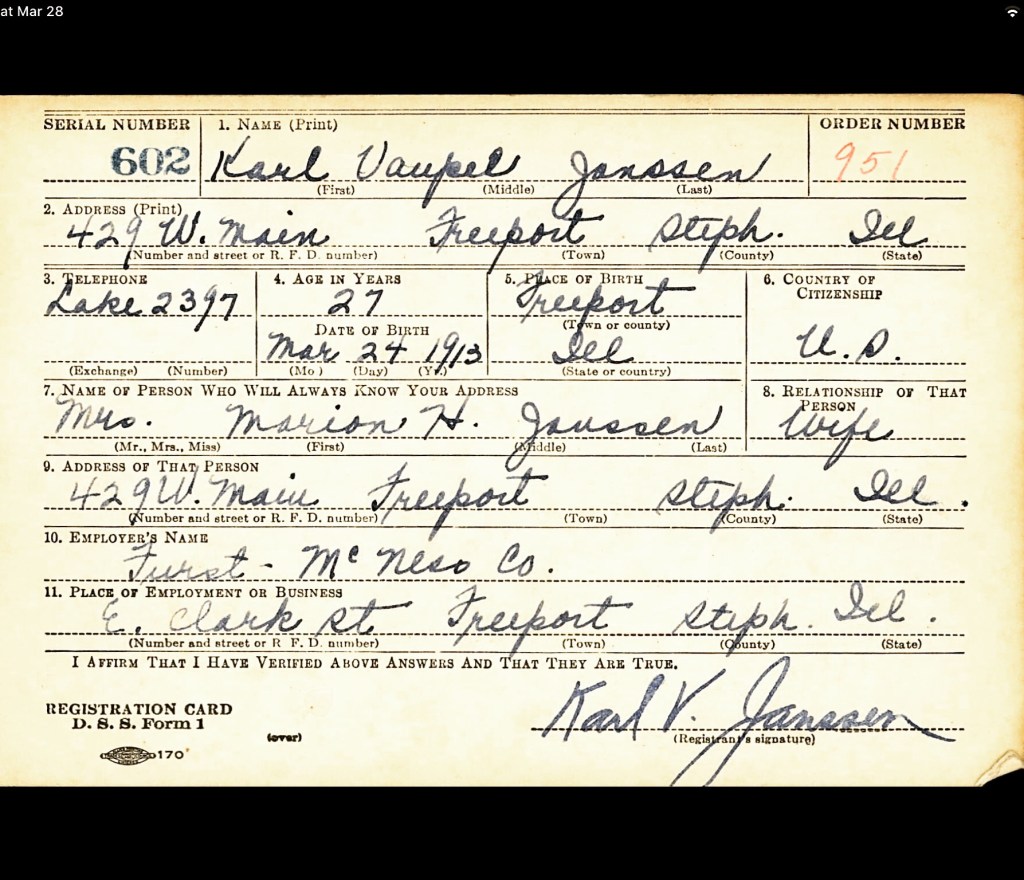 at Mar 28
SERIAL NUMBER 1. NAME (Print) ORDER NUMBER
602 Karl Vaupel Janssen 951
(First) (Middle) (Last)
2. ADDRESS (Print)
429 W. Main Freeport Steph. Ill
(Number and street or R. F. D. number) (Town) (County) (State)
3. TELEPHONE 4. AGE IN YEARS 5. PLACE OF BIRTH 6. COUNTRY OF CITIZENSHIP
Lake 2397 27 Freeport
(Town or county)
DATE OF BIRTH
Mar 24 1913 Ill U.S.
(Exchange) (Number) (Mo.) (Day) (Yr.) (State or country)
7. NAME OF PERSON WHO WILL ALWAYS KNOW YOUR ADDRESS 8. RELATIONSHIP OF THAT PERSON
Mrs. Marion H. Janssen Wife
(Mr., Mrs., Miss) (First) (Middle) (Last)
9. ADDRESS OF THAT PERSON
429 W. Main Freeport Steph. Ill.
(Number and street or R. F. D. number) (Town) (County) (State)
10. EMPLOYER'S NAME
Furst-McNess Co.
11. PLACE OF EMPLOYMENT OR BUSINESS
E. Clark St Freeport Steph. Ill.
(Number and street or R. F. D. number) (Town) (County) (State)
I AFFIRM THAT I HAVE VERIFIED ABOVE ANSWERS AND THAT THEY ARE TRUE.
Karl V. Janssen
REGISTRATION CARD
D. S. S. Form 1
(over) (Registrant's signature)
170